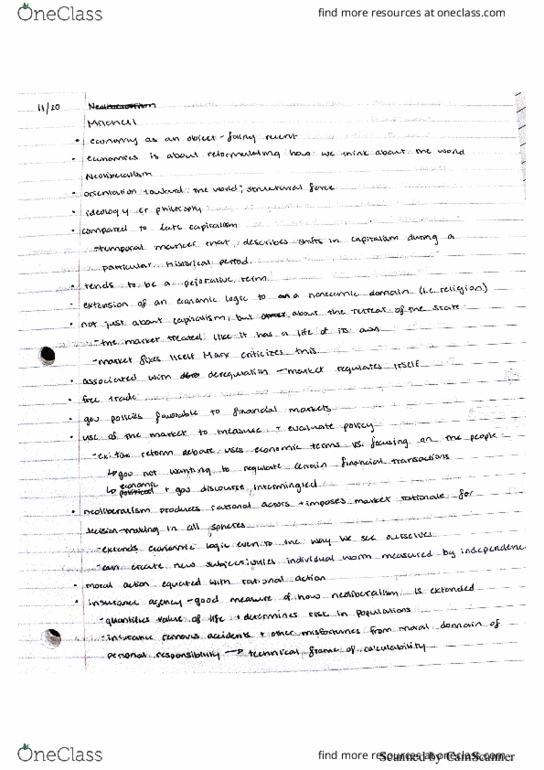 OneClass find more resources at oneclass.com
11/20 Neoliberalism
Mitchell
• economy as an object - fairly recent
• economics is about reformulating how we think about the world
Neoliberalism
• orientation toward the world; structural force
• ideology or philosophy
• compared to late capitalism
-temporal marker that describes shifts in capitalism during a
particular historical period.
• tends to be a pejorative term
• extension of an economic logic to a noneconomic domain (i.e. religion)
• not just about capitalism, but about the retreat of the state
-the market treated like it has a life of its own
-market fixes itself Marx criticizes this
• associated with deregulation - market regulates itself
• free trade
• gov policies favorable to financial markets
• use of the market to measure + evaluate policy
-ex: tax reform debate uses economic terms vs. focusing on the people
↳ gov not wanting to regulate certain financial transactions
↳ economic political + gov discourse intermingled
• neoliberalism produces rational actors + imposes market rationale for
decision-making in all spheres
-extends economic logic even to the way we see ourselves
-can create new subjectivities individual worth measured by independence
• moral action equated with rational action
• insurance agency - good measure of how neoliberalism is extended
-quantifies value of life + determines risk in populations
-insurance removes accidents + other misfortunes from moral domain of
personal responsibility → technical frame of calculability
OneClass find more resources at oneclass.com
Scanned by CamScanner